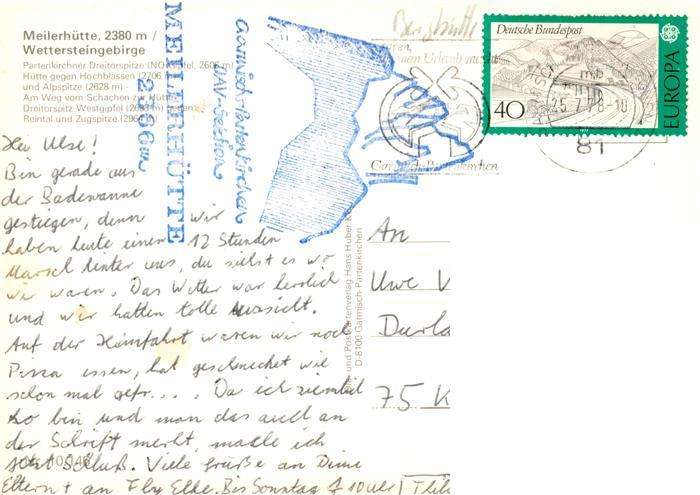 Meilerhütte, 2380 m /
Wettersteingebirge
Partenkirchner Dreitorspitze (NO-Gipfel, 2606 m)
Hütte gegen Hochblassen (2706 m)
und Alpspitze (2628 m)
Am Weg vom Schachen zur Hütte
Dreitorspitz-Westgipfel (2633 m) gegen
Reintal und Zugspitze (296
MEILERHÜTTE
2366m
Garmisch-Partenkirchen
DAV-
Berghütte
Urlaub
Garmisch-Partenkirchen
Deutsche Bundespost
40
EUROPA
25.7.78-18
81
Hei Uwe!
Bin gerade aus
der Badewanne
gestiegen, denn wir
haben heute einen 12 Stunden
Marsch hinter uns, du siehst es wo
wir waren. Das Wetter war herrlich
und wir hatten tolle Aussicht.
Auf der Heimfahrt waren wir noch
Pizza essen, hat geschmecket wie
schon mal gefr.... Da ich ziemlich
ko bin und man das auch an
der Schrift merkt, mache ich
jetzt Schluß. Viele Grüße an Deine
Eltern + an Elke. Bis Sonntag 10 Uhr!
und Postkartenverlag Hans Huber K
D-8100 Garmisch-Partenkirchen
An
Uwe V
Durla
75 K